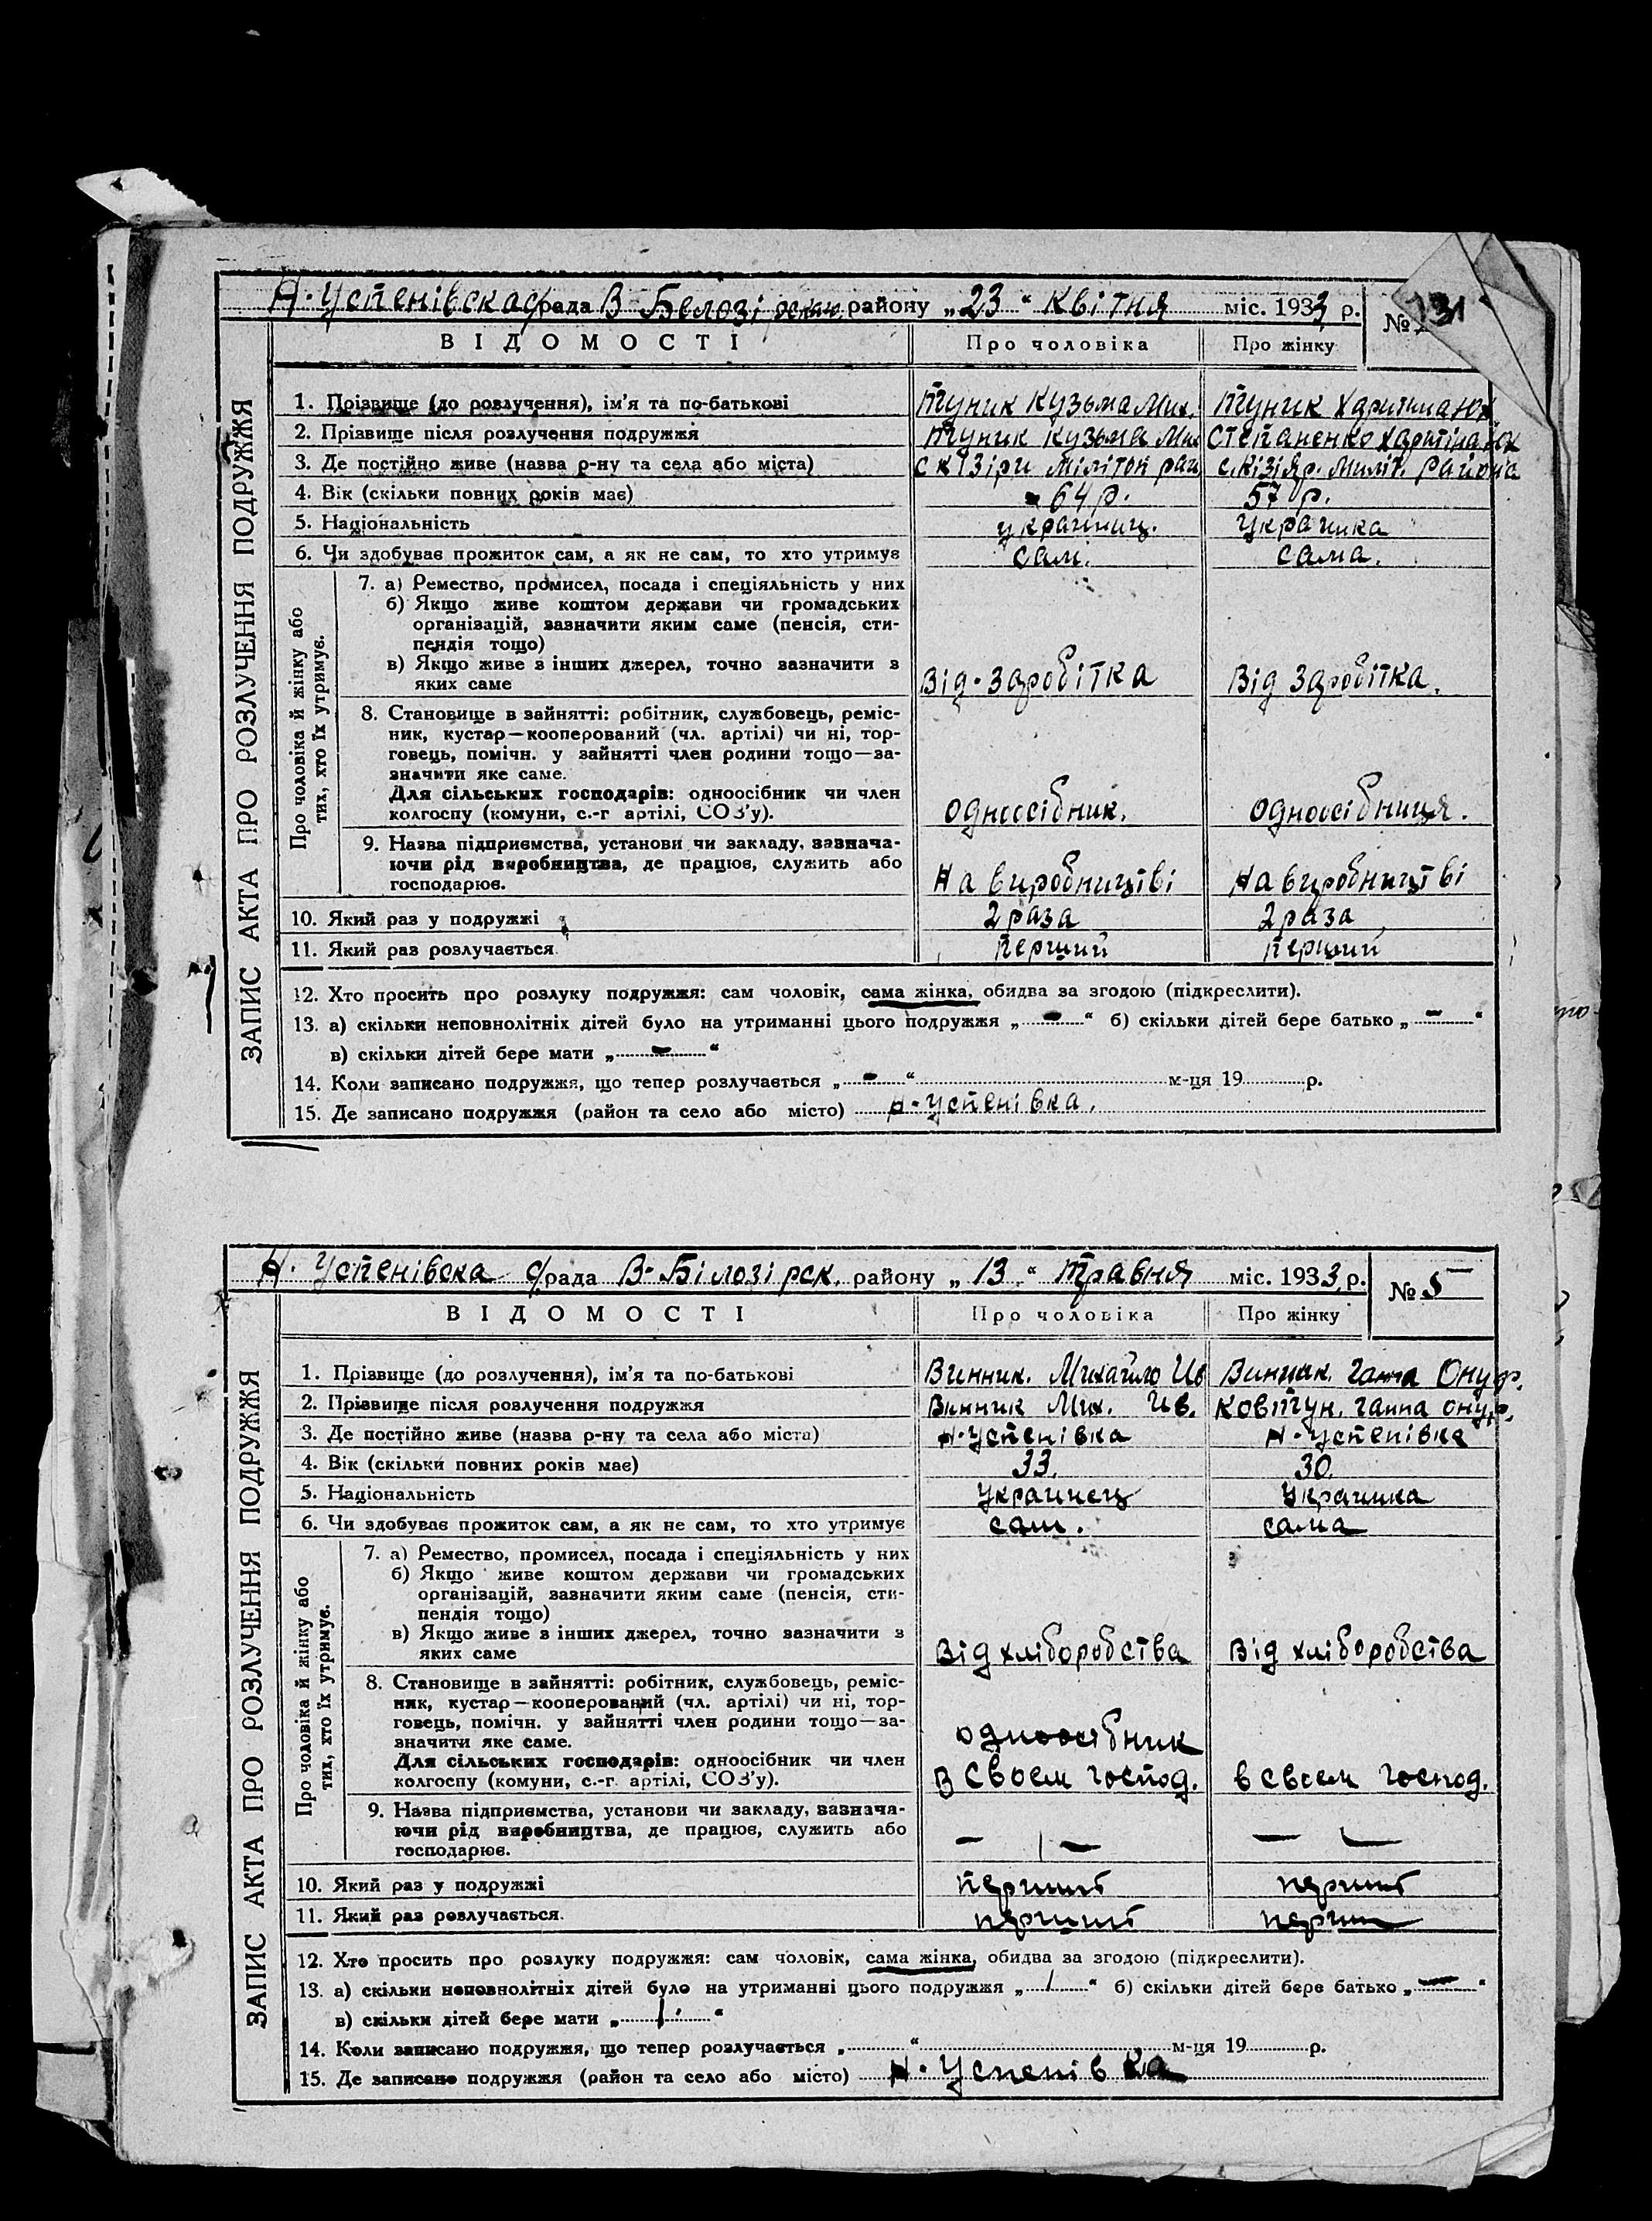 Н. Успенівска с/рада В-Белозі району „23“ Квітня міс. 1933 р.
№ 131
ВІДОМОСТІ Про чоловіка Про жінку
ЗАПИС АКТА ПРО РОЗЛУЧЕННЯ ПОДРУЖЖЯ
1. Прізвище (до розлучення), ім’я та по-батькові Туник Кузьма Мих. Туник Харитина Юх
2. Прізвище після розлучення подружжя Туник Кузьма Мих Степаненко Харитіна Юх
3. Де постійно живе (назва р-ну та села або міста) с. Района
4. Вік (скільки повних років має) 64 р. 57 р.
5. Національність украинец. Украинка
6. Чи здобуває прожиток сам, а як не сам, то хто утримує сам. сама.
Про чоловіка й жінку або
тих, хто їх утримує.
7. а) Ремество, промисел, посада і спеціяльність у них
б) Якщо живе коштом держави чи громадських
організацій, зазначити яким саме (пенсія, сти-
пендія тощо)
в) Якщо живе з інших джерел, точно зазначити з
яких саме Від-заробітка Від заробітка.
8. Становище в зайнятті: робітник, службовець, реміс-
ник, кустар—кооперований (чл. артілі) чи ні, тор-
говець, помічн. у зайнятті член родини тощо—за-
значити яке саме.
Для сільських господарів: одноосібник чи член
колгоспу (комуни, с.-г артілі, СОЗ’у). одноосібник. одноосібниця.
9. Назва підприємства, установи чи закладу, зазнача-
ючи рід виробництва, де працює, служить або
господарює. На виробництві На виробництві
10. Який раз у подружжі 2 раза 2 раза
11. Який раз розлучається. перший перший
12. Хто просить про розлуку подружжя: сам чоловік, сама жінка, обидва за згодою (підкреслити).
13. а) скільки неповнолітніх дітей було на утриманні цього подружжя „ - “ б) скільки дітей бере батько „ - “
в) скільки дітей бере мати „ - “
14. Коли записано подружжя, що тепер розлучається „ - “ м-ця 19 р.
15. Де записано подружжя (район та село або місто) Н-Успенівка.
Н. Успенівска с/рада В-Білозірск. району „13“ Травня міс. 1933 р.
№ 5
ВІДОМОСТІ Про чоловіка Про жінку
ЗАПИС АКТА ПРО РОЗЛУЧЕННЯ ПОДРУЖЖЯ
1. Прізвище (до розлучення), ім’я та по-батькові Винник. Михайло Ив Винник. Ганна Онуф.
2. Прізвище після розлучення подружжя Винник Мих. Ив. Ковтун. Ганна Онуф.
3. Де постійно живе (назва р-ну та села або міста) Н-Успенівка Н-Успенівка
4. Вік (скільки повних років має) 33. 30.
5. Національність Украинец Украинка
6. Чи здобуває прожиток сам, а як не сам, то хто утримує сам. сама
Про чоловіка й жінку або
тих, хто їх утримує.
7. а) Ремество, промисел, посада і спеціяльність у них
б) Якщо живе коштом держави чи громадських
організацій, зазначити яким саме (пенсія, сти-
пендія тощо)
в) Якщо живе з інших джерел, точно зазначити з
яких саме Від хліборобства Від хліборобства
8. Становище в зайнятті: робітник, службовець, реміс-
ник, кустар—кооперований (чл. артілі) чи ні, тор-
говець, помічн. у зайнятті член родини тощо—за-
значити яке саме. одноосібник
Для сільських господарів: одноосібник чи член
колгоспу (комуни, с.-г. артілі, СОЗ’у). в своем господ. в своем господ.
9. Назва підприємства, установи чи закладу, зазнача-
ючи рід виробництва, де працює, служить або
господарює. — — — —
10. Який раз у подружжі перший перший
11. Який раз розлучається. перший перший
12. Хто просить про розлуку подружжя: сам чоловік, сама жінка, обидва за згодою (підкреслити).
13. а) скільки неповнолітніх дітей було на утриманні цього подружжя „ 1 “ б) скільки дітей бере батько „ — “
в) скільки дітей бере мати „ 1 “
14. Коли записано подружжя, що тепер розлучається „ “ м-ця 19 р.
15. Де записано подружжя (район та село або місто) Н-Успенівка